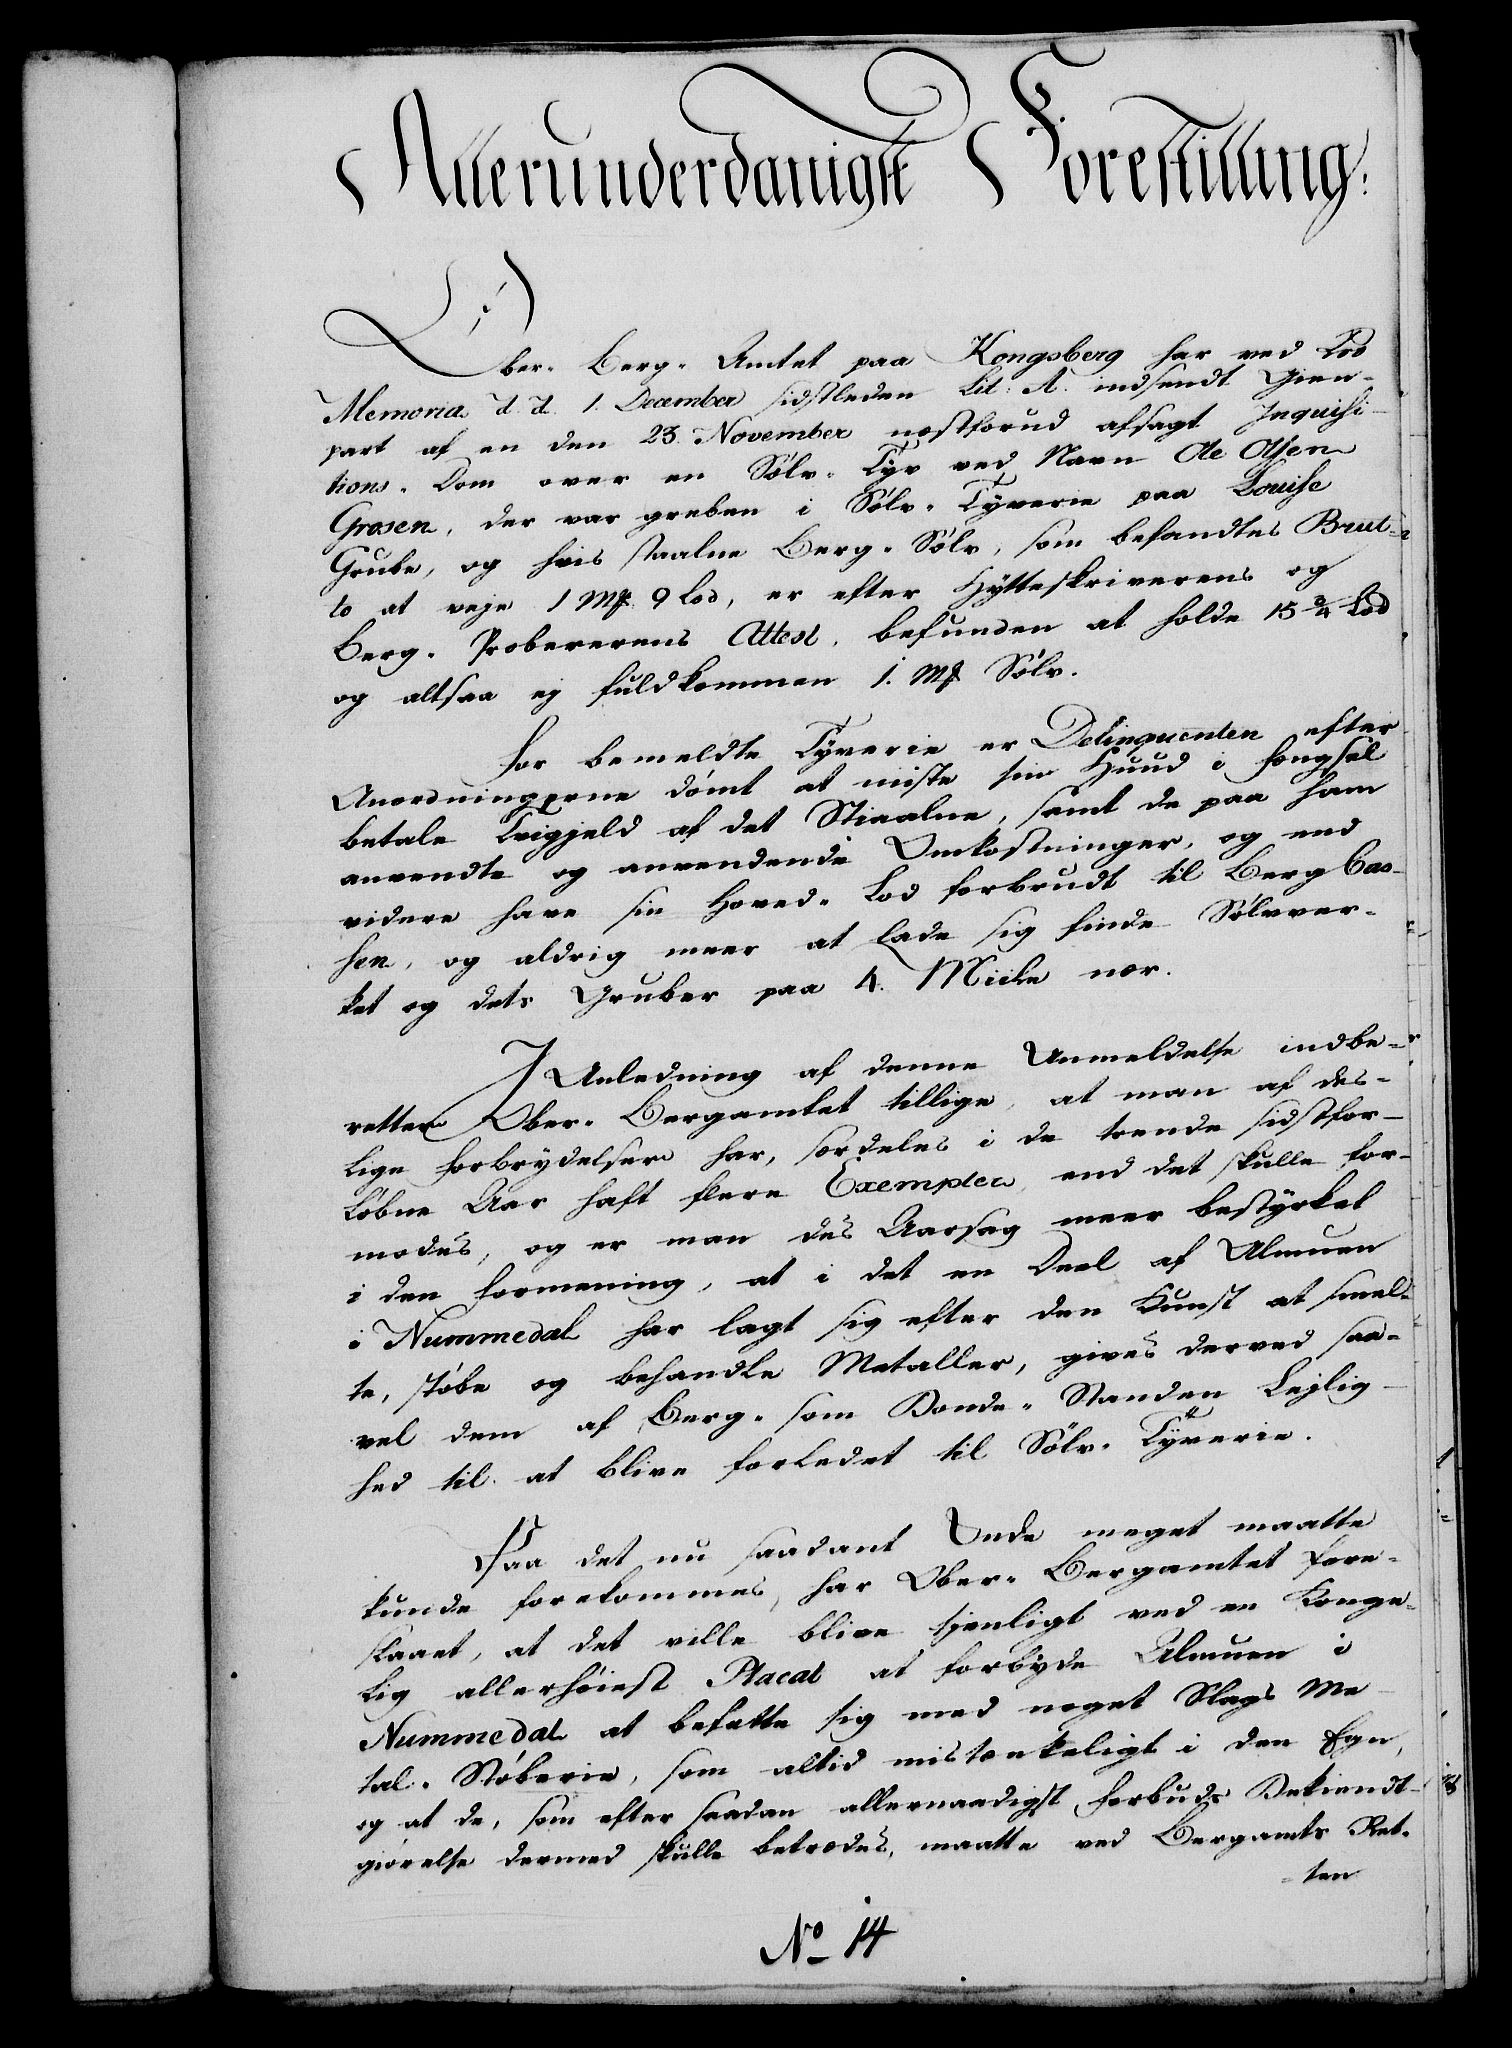 Allerunderdanigst Forestilling:
Ober- Berg- Amtet paa Kongsberg har ved
Memoria d. d. 1. December sidstleden Lit: A. indsendt Gien-
part af en den 23 November næstforud afsagt Inquisi-
tions- Dom over en Sølv- Tyv ved Navn Ole Olsen
Grosen, der var greben i Sølv- Tyverie paa Louise
Grube, og hvis staalne Berg- Sølv, som befandtes Brut-
to at veje 1 Mk 9 Lod, er efter Hytteskriverens og
Berg- Probererens Attest, befunden at holde 15 3/4 Lod
og altsaa ej fuldkommen 1. Mk Sølv.
For bemeldte Tyverie er Delinquenten efter
Anordningerne dømt at miste sin Huud i Fængsel
betale Tvigjeld af det Stiaalne, samt de paa ham
anvendte og anvendende Omkostninger, og end
videre have sin Hoved- Lod forbrudt til Berg Cas-
sen, og aldrig meer at lade sig finde Sølvver-
ket og dets Gruber paa 4. Miile nær.
I Anledning af denne Anmeldelse indbe-
retter Ober- Bergamtet tillige, at man af des-
lige Forbrydelser har, særdeles i de trende sidstfor-
løbne Aar haft flere Exempler, end det skulle for-
modes, og er man des Aarsag meer bestyrket
i den Formening, at i det en Deel af Almuen
i Nummedal har lagt sig efter den Kunst at smel-
te, støbe og behandle Metaller, gives derved saa-
vel dem af Berg- som Bonde- Standen Lejlig-
hed til at blive forledet til Sölv- Tyverie.
Paa det nu saadant Onde meget maatte
kunde forekommes, har Ober- Bergamtet fore-
slaaet, at det ville blive tjenligt ved en Konge-
lig allerhøiest Placat at forbyde Almuen i
Nummedal at befatte sig med noget Slags Me-
tal- Støberie, som altid mistænkeligt i den Egn,
og at de, som efter saadan allernaadigst Forbuds Bekiendt-
giørelse dermed skulle betrædes, maatte ved Bergamts Ret-
=ten
No 14